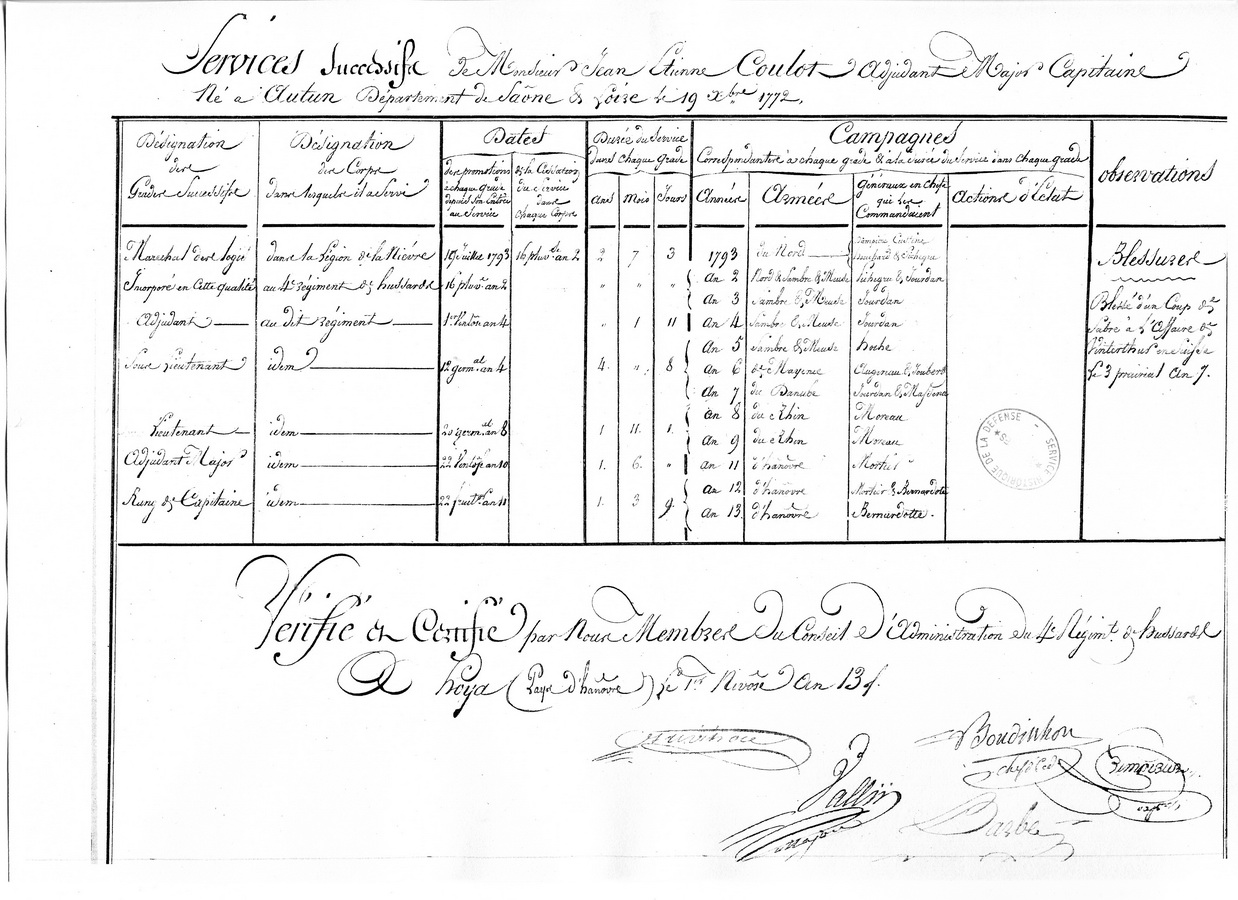 Services Successifs De Monsieur Jean Etienne Coulot Adjudant Major Capitaine
Né à Autun Département de Saône & Loire le 19 Xbre 1772,
Désignation des Grades Successifs
Désignation des Corps dans lesquels il a Servi
Dates
des promotions à chaque grade depuis son Entrée au Service
de la Cessation du Service dans chaque Corps
Durée du Service dans chaque grade
Ans Mois Jours
Campagnes
Correspondantes à chaque grade & à la durée du Service dans chaque grade
Années Armées Généraux en Chefs qui les Commandaient Actions d'Eclat
observations
Marechal des logis dans la Légion de la Nièvre 1793 16 pluvse an 2 2 7 3 1793 du Nord
Incorporé en Cette qualité au 4e Régiment de hussards 16 pluv an 2 " " " An 2 Nord & Sambre & Meuse Pichegru & Jourdan
An 3 Sambre & Meuse Jourdan
Adjudant au dit régiment 1er Ventose an 4 " 1 11 An 4 Sambre & Meuse Jourdan
An 5 Sambre & Meuse hoche
Sous Lieutenant idem 12 germal an 4 4. " 8 An 6 de Mayence Augereau & Joubert
An 7 du Danube Jourdan & Massena
An 8 du Rhin Moreau
Lieutenant idem 20 germal an 8 1 11. 1. An 9 du Rhin Moreau
Adjudant Major idem 22 Ventose an 10 1. 6. " An 11 d'hanovre Mortier
Rang de Capitaine idem 22 fruitor an 11 1. 3 9. An 12 d'hanovre Mortier & Bernardotte
An 13. d'hanovre Bernardotte.
Blessures
Blessé d'un Coup de
Sabre à l'Affaire de
Vinterthur en Suisse
le 3 prairial An 7.
SERVICE HISTORIQUE DE LA DÉFENSE
Vérifié et Certifié par Nous Membres Du Conseil D'Administration du 4e Régimt. de hussards
A hoya (Pays d'hanovre) le 1er Nivose An 13 f.
Boudinhon
chef d'Ed
Vallin
major
Barbe